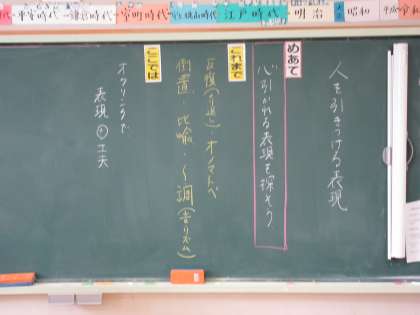 平安時代
鎌倉時代
室町時代
安土桃山時代
江戸時代
明治
大正
昭和
平成
令和
人を引きつける表現
めあて
心引かれる表現を探そう
これまで
反復(くり返し)・オノマトペ
倒置・比喩・〜調(音リズム)
ここでは
オクリンクで
表現の工夫